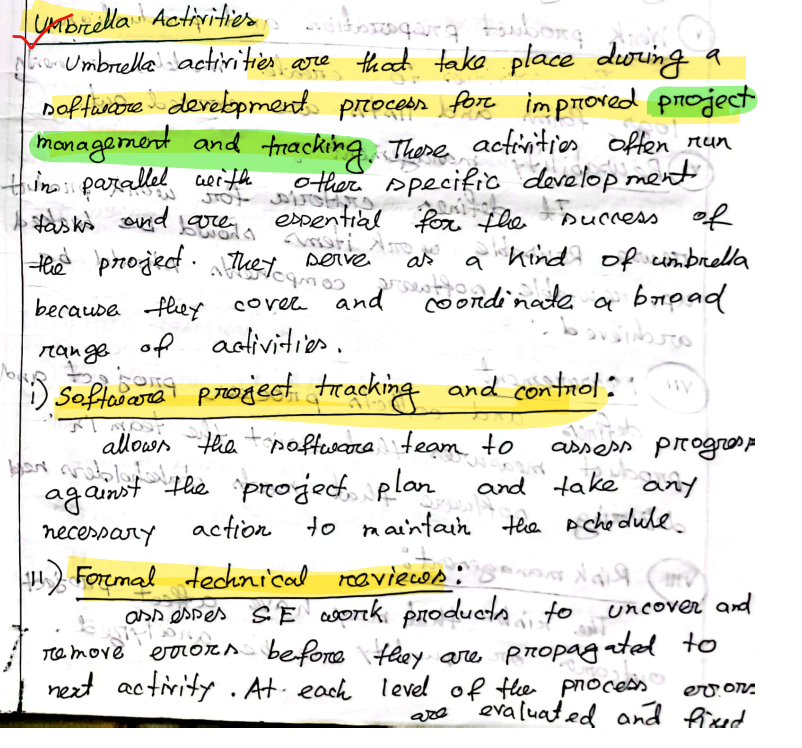 Umbrella Activities
Umbrella activities are that take place during a
software development process for improved project
management and tracking. These activities often run
in parallel with other specific development
tasks and are essential for the success of
the project. They serve as a kind of umbrella
because they cover and coordinate a broad
range of activities.
i) Software project tracking and control:
allows the software team to assess progress
against the project plan and take any
necessary action to maintain the schedule.
ii) Formal technical reviews:
assesses SE work products to uncover and
remove errors before they are propagated to
next activity. At each level of the process errors
are evaluated and fixed